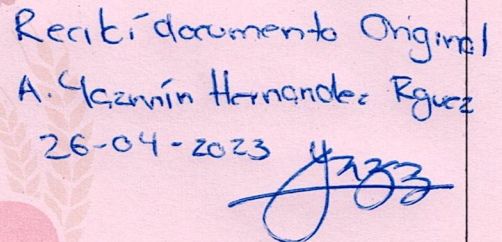 Recibí documento Original
A. Yazmín Hernandez Rguez
26-04-2023